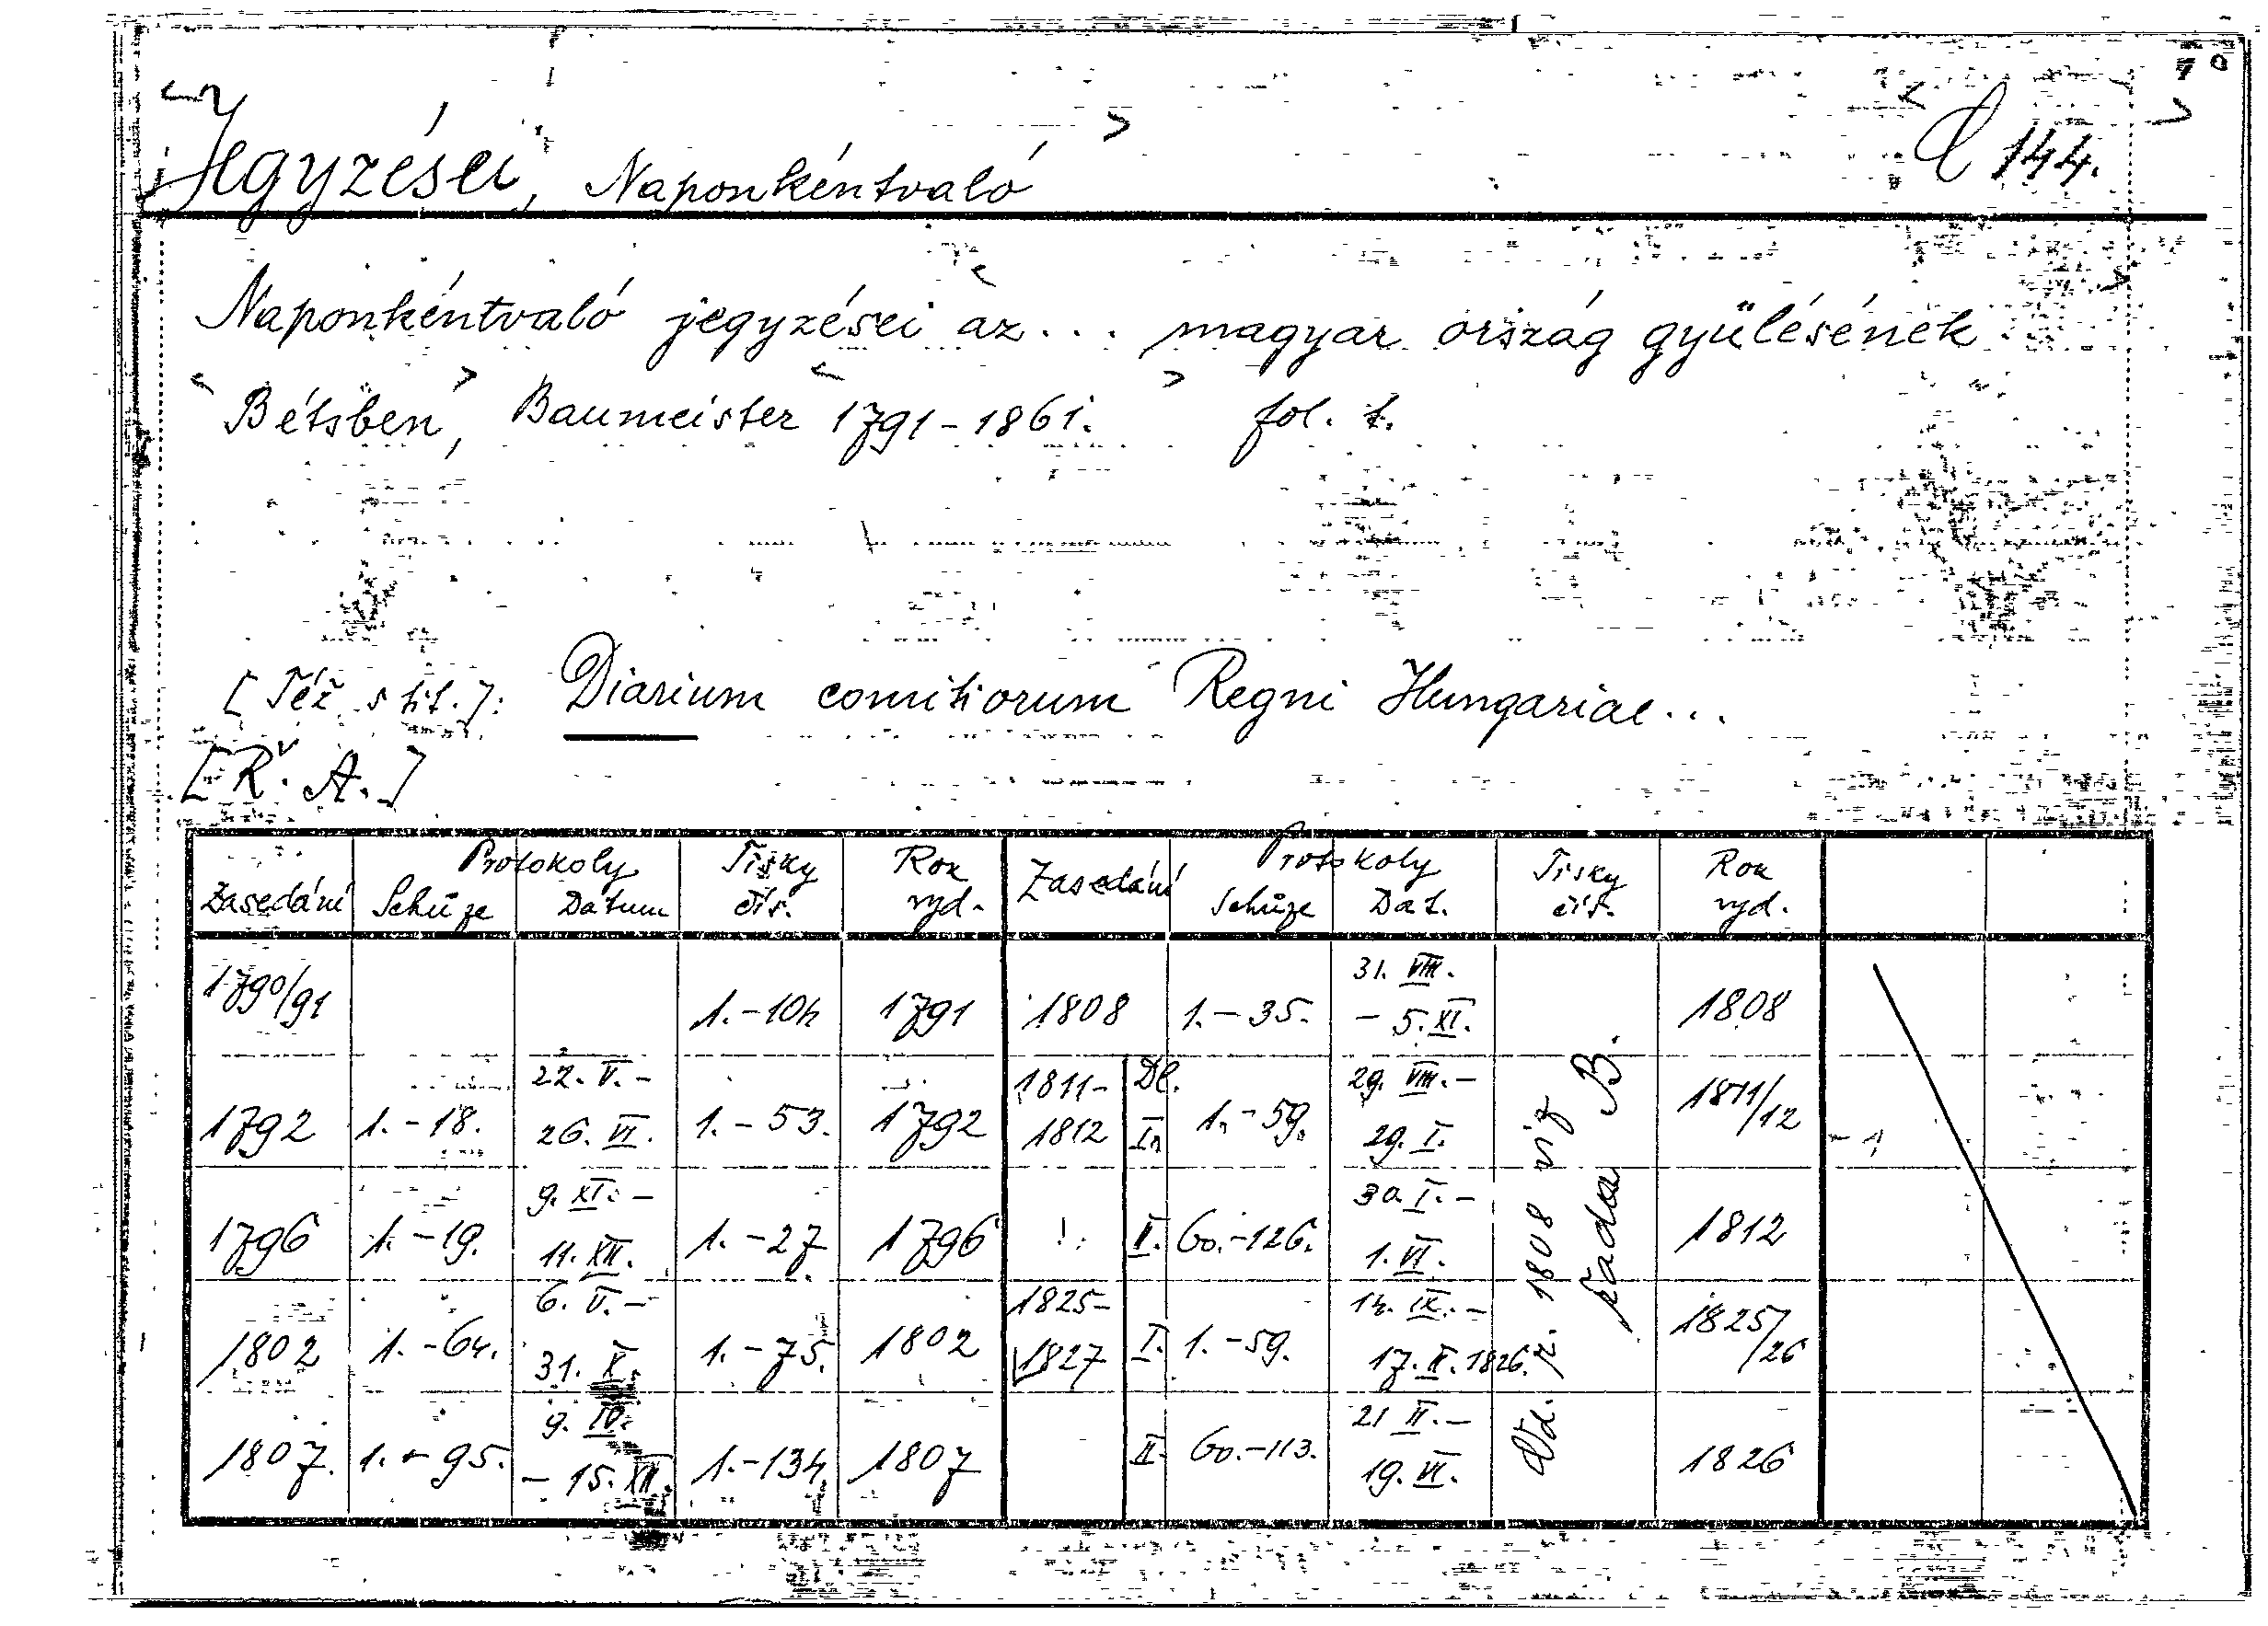 Jegyzései, Naponkéntvaló
C 144.
Naponkéntvaló jegyzései az... magyar ország gyülésének
Bétsben, Baumeister 1791-1861. fol. t.
[Též s tit.]: Diarium comitiorum Regni Hungariae...
[Ř. A.]
Zasedání Protokoly Schůze Datum Tisky čís. Rok vyd. Zasedání Protokoly Schůze Dat. Tisky čís. Rok vyd.
1790/91 1.-104 1791 1808 1.-35. 31. VIII. - 5. XI. 1808
1792 1.-18. 22. V.- 26. VI. 1.-53. 1792 1811-1812 Dl. I. 1.-59. 29. VIII.- 29. I. 1811/12
1796 1.-19. 9. XI.- 11. XII. 1.-27 1796 II. 60.-126. 30. I.- 1. VI. 1812
1802 1.-64. 6. V.- 31. X. 1.-75. 1802 1825-1827 I. 1.-59. 14. IX.- 17. II. 1826. 1825/26
1807. 1.-95. 9. IV. - 15. XII. 1.-134. 1807 II. 60.-113. 21 II.- 19. VI. 1826
Od. r. 1808 viz
řada B.